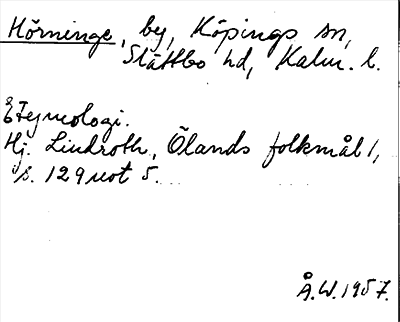 Hörninge, by, Köpings sn,
Slättbo hd, Kalm. l.
Etymologi.
Hj. Lindroth, Ölands folkmål 1,
s. 129 not 5.
Å.W. 1957.